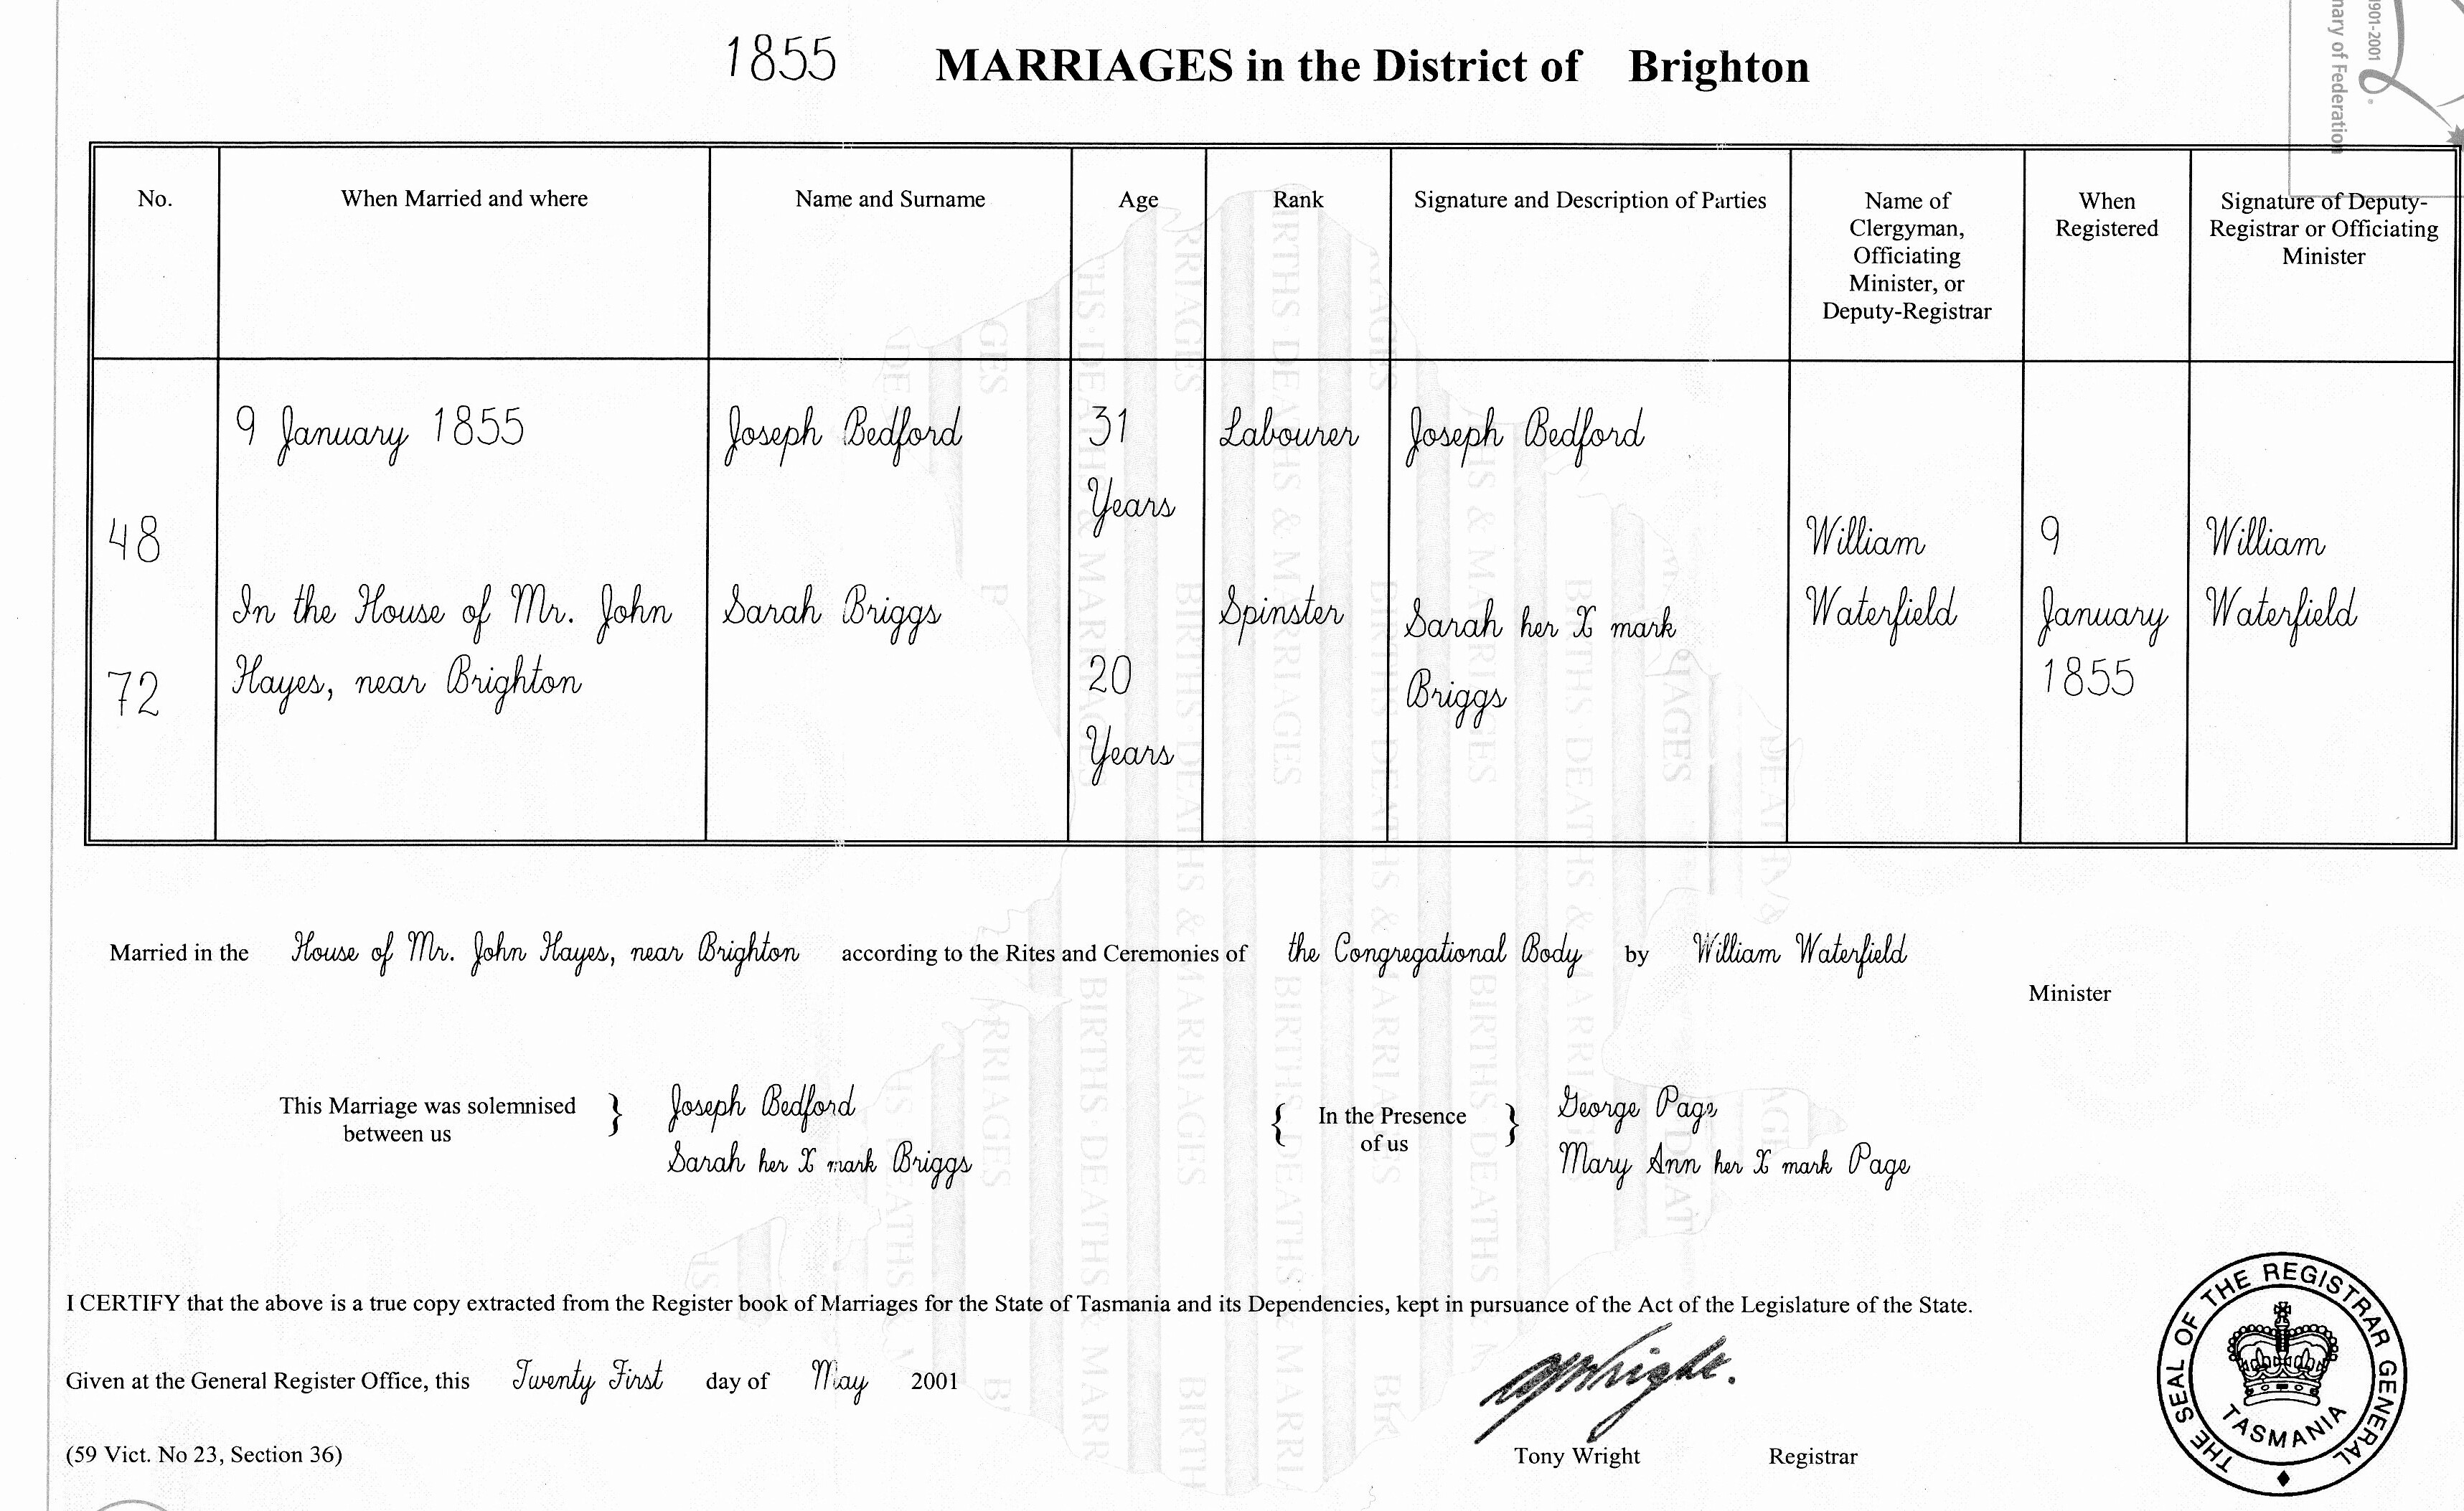 1901-2001
nary of Federation
1855 MARRIAGES in the District of Brighton
No.
When Married and where
Name and Surname
Age
Rank
Signature and Description of Parties
Name of
Clergyman,
Officiating
Minister, or
Deputy-Registrar
When
Registered
Signature of Deputy-
Registrar or Officiating
Minister
48
72
9 January 1855
In the House of Mr. John
Hayes, near Brighton
Joseph Bedford
Sarah Briggs
31
Years
20
Years
Labourer
Spinster
Joseph Bedford
Sarah her X mark
Briggs
William
Waterfield
9
January
1855
William
Waterfield
Married in the House of Mr. John Hayes, near Brighton according to the Rites and Ceremonies of the Congregational Body by William Waterfield
Minister
This Marriage was solemnised
between us
} Joseph Bedford
Sarah her X mark Briggs
{ In the Presence
of us }
George Page
Mary Ann her X mark Page
I CERTIFY that the above is a true copy extracted from the Register book of Marriages for the State of Tasmania and its Dependencies, kept in pursuance of the Act of the Legislature of the State.
Given at the General Register Office, this Twenty First day of May 2001
(59 Vict. No 23, Section 36)
Tony Wright Registrar
THE SEAL OF THE REGISTRAR GENERAL
TASMANIA